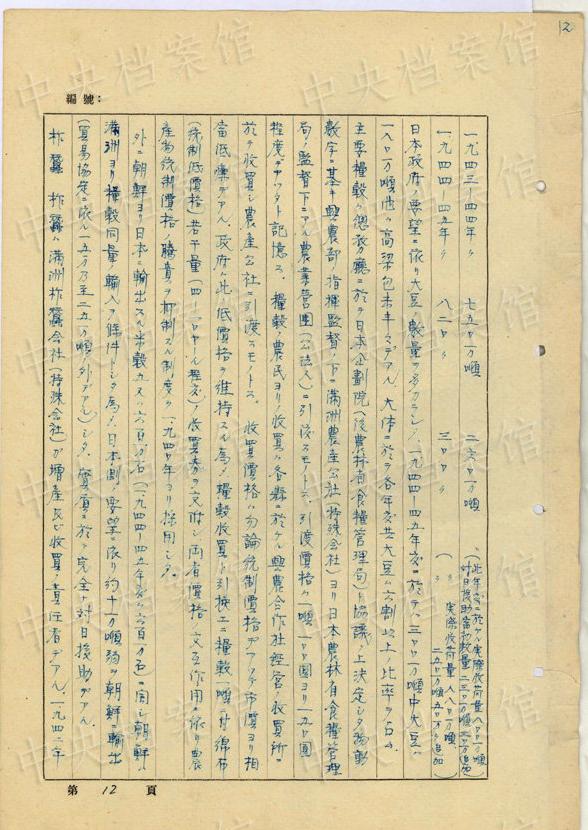 12
編號：
一九四三—四四年〃 七五〇万噸 二六〇万噸
一九四四—四五年〃 八二〇〃 三〇〇〃
日本政府ノ要望ニ依リ大豆ノ数量ヲ多カラシメ、一九四四—四五年度ニ於テハ三〇〇万噸中大豆ハ
一八〇万噸他ハ高粱包米半々デアル。大体ニ於テ各年度共大豆ハ六割以上ノ比率ヲ占ム。
主要糧穀ハ総務庁ニ於テ日本企劃院(後農林省食糧管理局)ト協議ノ上決定シタ物動
数字ニ基キ興農部ノ指揮監督ノ下ニ満洲農産公社(特殊会社)ヨリ日本農林省食糧管理
局ノ監督下ニアル農業営団(公法人)ニ引渡スモノトス、引渡價格ハ一噸一〇〇圓ヨリ一五〇圓
程度デアツタト記憶ス。糧穀ノ農民ヨリノ收買ハ各縣ニ於ケル興農合作社経営ノ收買所ニ
於テ收買シ農産公社ニ引渡スモノトス。收買價格ハ勿論統制價格デアツテ市價ヨリ相
當低廉デアル。政府ハ此ノ低價格ヲ維持スル為ノ糧穀收買ト引換エニ糧穀一噸ニ付綿布
(統制低價格)若干量(四—一〇ヤール程度)ノ收買券ヲ交附シ両者價格ノ交互作用ニ依リ農
産物統制價格ノ騰貴ヲ抑制スル制度ヲ一九四〇年ヨリ採用シタ。
外ニ朝鮮ヨリ日本ニ輸出スル米穀五乃至六百万石(一九四四—四五年度ハ六百万石)ニ関シ朝鮮ハ
満洲ヨリ糧穀同量ノ輸入ヲ條件トシタ為ノ日本側ノ要望ニ依リ約十一万噸弱ヲ朝鮮ニ輸出
(貿易協定ニ依ル一五万乃至二五万噸ノ外デアル)シタ。實質ニ於テ完全ナ対日援助デアル。
柞蠶 柞蠶ハ満洲柞蠶会社(特殊会社)ガ増産及ビ收買ノ責任者デアル。一九四二年
第 12 頁